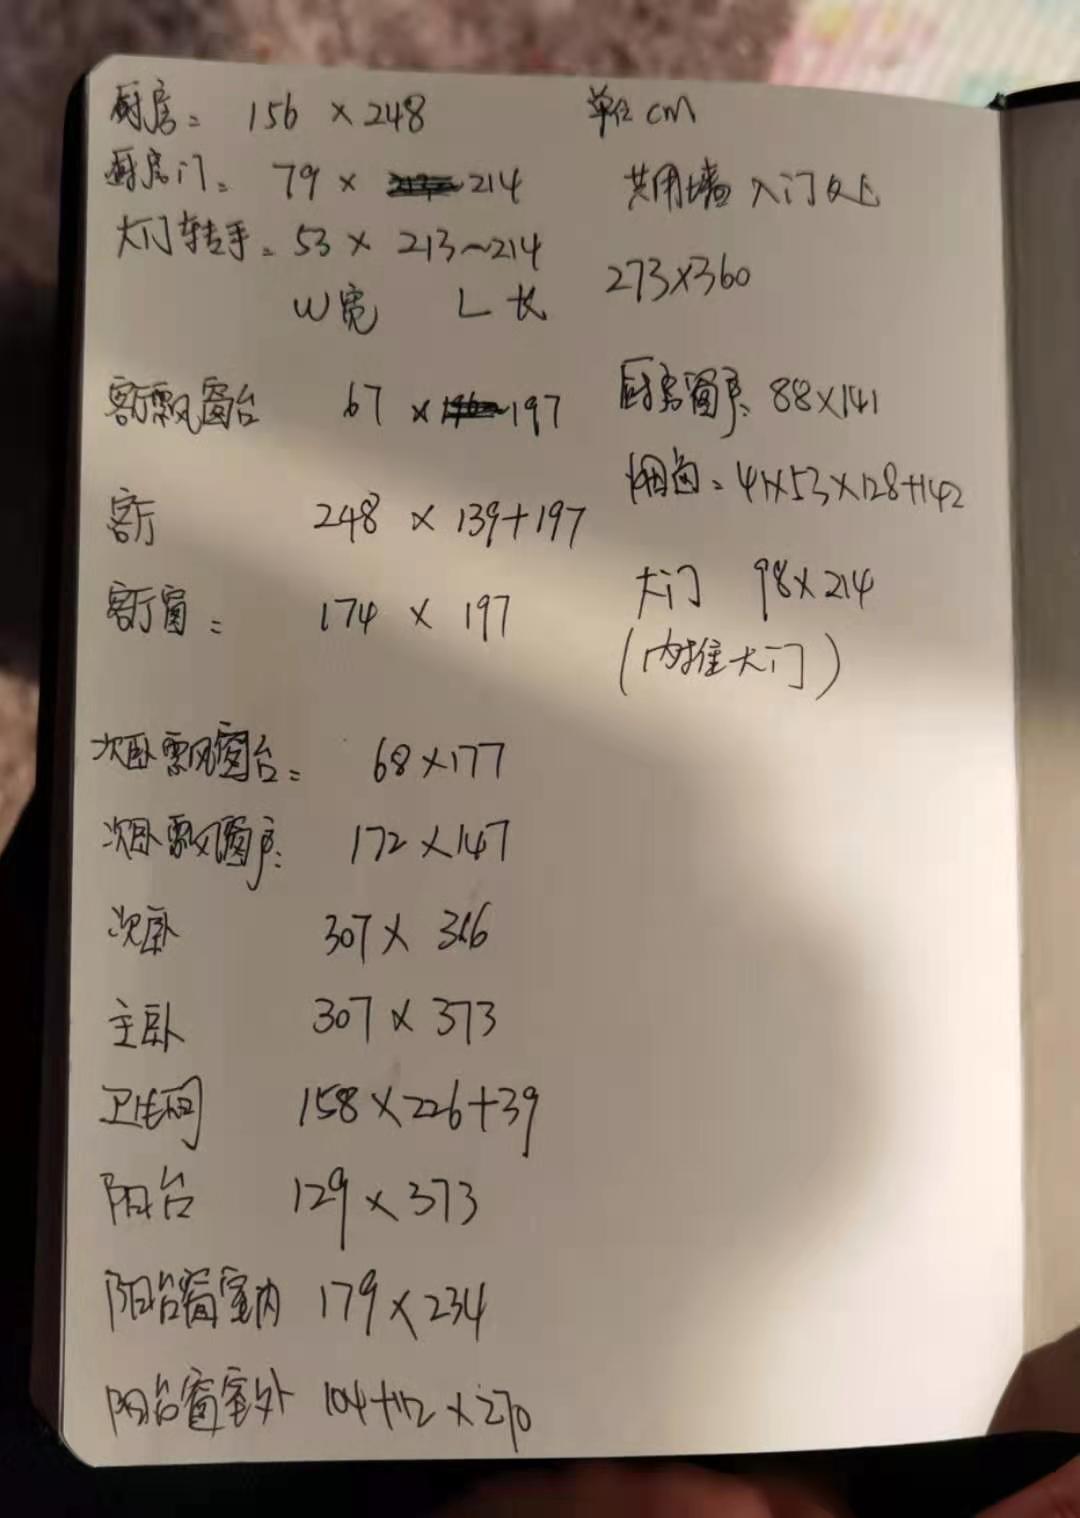 厨房: 156 × 248
厨房门: 79 × 214
大门转手: 53 × 213~214
W宽 L长
客厅飘窗台 67 × 197
客厅 248 × 139+197
客厅窗: 174 × 197
次卧飘窗台: 68×177
次卧飘窗户: 172×147
次卧 307×
主卧 307×373
卫生间 158×226+39
阳台 129×373
阳台窗室内 179×234
阳台窗室外 104+112×270
单位 cm
共用墙 入门处
273×360
厨房窗户: 88×141
烟囱: 41×53×128+142
大门 98×214
(内推大门)